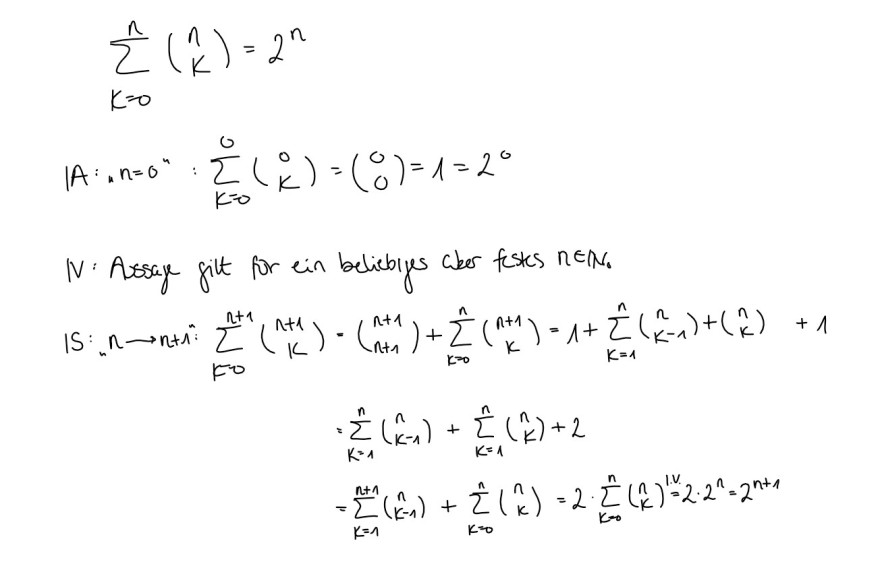 \sum_{k=0}^{n} \binom{n}{k} = 2^n
IA: „n=0“ : \sum_{k=0}^{0} \binom{0}{k} = \binom{0}{0} = 1 = 2^0
IV: Aussage gilt für ein beliebiges aber festes n∈ℕ.
IS: „n→n+1“: \sum_{k=0}^{n+1} \binom{n+1}{k} = \binom{n+1}{n+1} + \sum_{k=0}^{n} \binom{n+1}{k} = 1 + \sum_{k=1}^{n} \binom{n}{k-1} + \binom{n}{k} + 1
= \sum_{k=1}^{n} \binom{n}{k-1} + \sum_{k=1}^{n} \binom{n}{k} + 2
= \sum_{k=1}^{n+1} \binom{n}{k-1} + \sum_{k=0}^{n} \binom{n}{k} = 2 \cdot \sum_{k=0}^{n} \binom{n}{k} \overset{I.V.}{=} 2 \cdot 2^n = 2^{n+1}